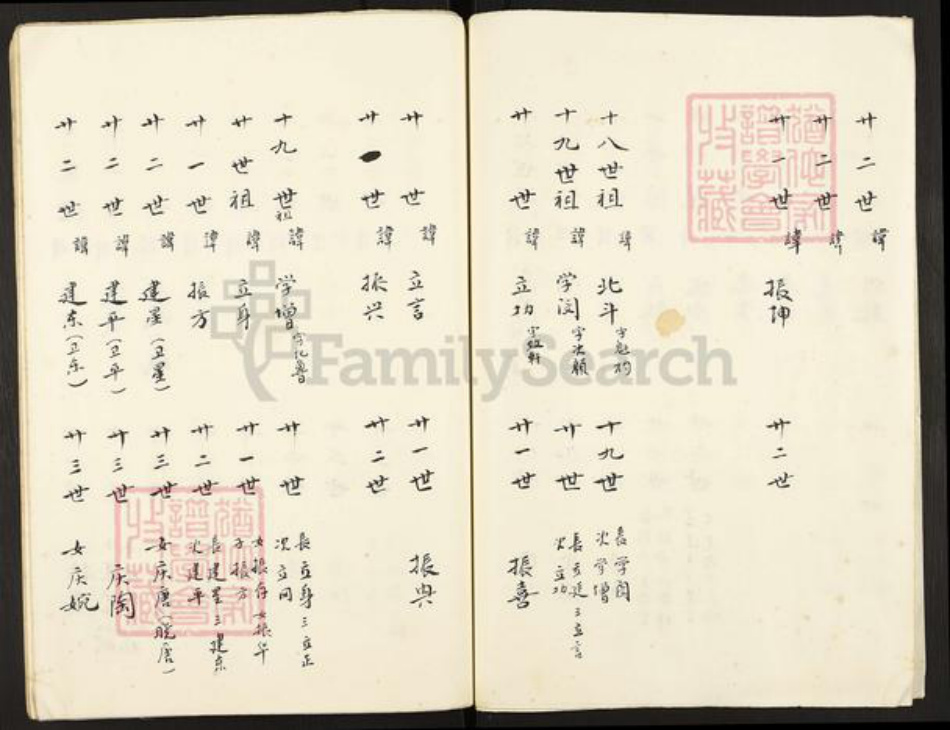 廿二世 諱
廿二世 諱
廿一世 諱 振坤 廿二世
十八世祖 諱 北斗 字魁杓 十九世 長学闵 次学增
十九世祖 諱 学闵 字次顏 廿世 長立廷 三立言 次立功
廿世 諱 立功 字敍軒 廿一世 振喜
廿世 諱 立言 廿一世 振兴
廿世 諱 振兴 廿二世
十九世祖 諱 学增 字化魯 廿世 長立身 三立正 次立同
廿世祖 諱 立身 廿一世 女振存 女振华 子振方
廿一世 諱 振方 廿二世 長建星 三建东 次建平
廿二世 諱 建星(卫星) 廿三世 女庆唐(晓唐)
廿二世 諱 建平(卫平) 廿三世 庆陶
廿二世 諱 建东(卫东) 廿三世 女庆婉
猶他家譜學會收藏
猶他家譜學會收藏
FamilySearch